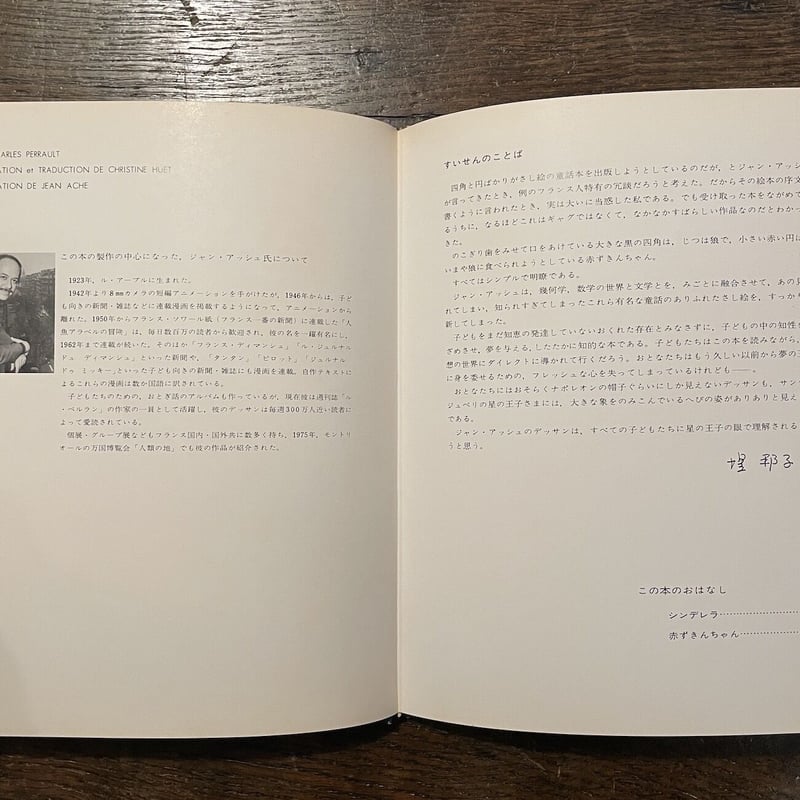 ARLES PERRAULT
ATION et TRADUCTION DE CHRISTINE HUET
ATION DE JEAN ACHE
この本の製作の中心になった，ジャン・アッシュ氏について
1923年，ル・アーブルに生まれた。
1942年より8㎜カメラの短編アニメーションを手がけたが，1946年からは，子ど
も向きの新聞・雑誌などに連載漫画を掲載するようになって，アニメーションから
離れた。1950年からフランス・ソワール紙（フランス一番の新聞）に連載した「人
魚アラベルの冒険」は，毎日数百万の読者から歓迎され，彼の名を一躍有名にし，
1962年まで連載が続いた。そのほか「フランス・ディマンシュ」「ル・ジュルナル
ドュ ディマンシュ」といった新聞や，「タンタン」「ピロット」「ジュルナル
ドゥ ミッキー」といった子ども向きの新聞・雑誌にも漫画を連載。自作テキストに
よるこれらの漫画は数か国語に訳されている。
子どもたちのための，おとぎ話のアルバムも作っているが，現在彼は週刊誌「ル
・ペルラン」の作家の一員として活躍し，彼のデッサンは毎週300万人近い読者に
よって愛読されている。
個展・グループ展などもフランス国内・国外共に数多く持ち，1975年，モントリ
オールの万国博覧会「人類の地」でも彼の作品が紹介された。
すいせんのことば
四角と円ばかりがさし絵の童話本を出版しようとしているのだが，とジャン・アッシ
が言ってきたとき，例のフランス人特有の冗談だろうと考えた。だからその絵本の序文
書くように言われたとき，実は大いに当惑した私である。でも受け取った本をながめて
るうちに，なるほどこれはギャグではなくて，なかなかすばらしい作品なのだとわかっ
きた。
のこぎり歯をみせて口をあけている大きな黒の四角は，じつは狼で，小さい赤い円は
いまや狼に食べられようとしている赤ずきんちゃん。
すべてはシンプルで明瞭である。
ジャン・アッシュは，幾何学，数学の世界と文学とを，みごとに融合させて，あの見
れてしまい，知られすぎてしまったこれら有名な童話のありふれたさし絵を，すっかり
新してしまった。
子どもをまだ知恵の発達していないおくれた存在とみなさずに，子どもの中の知性を
ざめさせ，夢を与える，したたかに知的な本である。子どもたちはこの本を読みながら，
想の世界にダイレクトに導かれて行くだろう。おとなたちはもう久しい以前から夢の三
に身を委せるための，フレッシュな心を失ってしまっているけれども——。
おとなたちにはおそらくナポレオンの帽子ぐらいにしか見えないデッサンも，サン
ジュペリの星の王子さまには，大きな象をのみこんでいるへびの姿がありありと見え
である。
ジャン・アッシュのデッサンは，すべての子どもたちに星の王子の眼で理解される
うと思う。
邦子
この本のおはなし
シンデレラ
赤ずきんちゃん